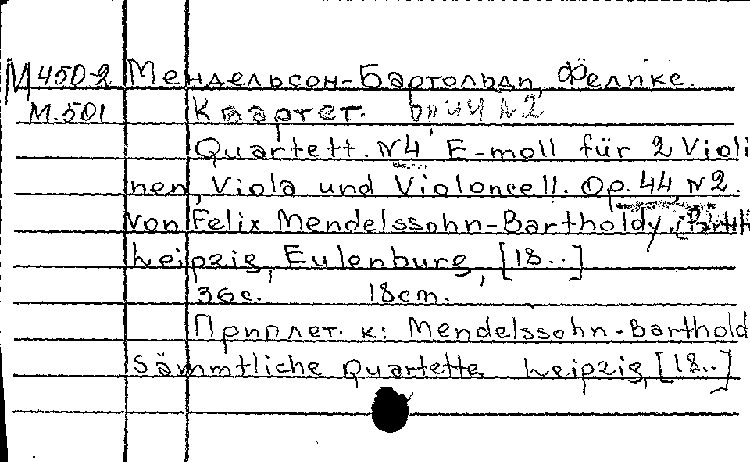 М450-2 Мендельсон-Бартольди, Феликс.
М.501 Квартет. оп 44 №2
Quartett. N4, E-moll für 2 Violi
nen, Viola und Violoncell. Op. 44, N2.
von Felix Mendelssohn-Bartholdy.
Leipzig, Eulenburg, [18..]
36с. 18cm.
Приплет. к: Mendelssohn-Barthold
Sämmtliche Quartette. Leipzig, [18..]